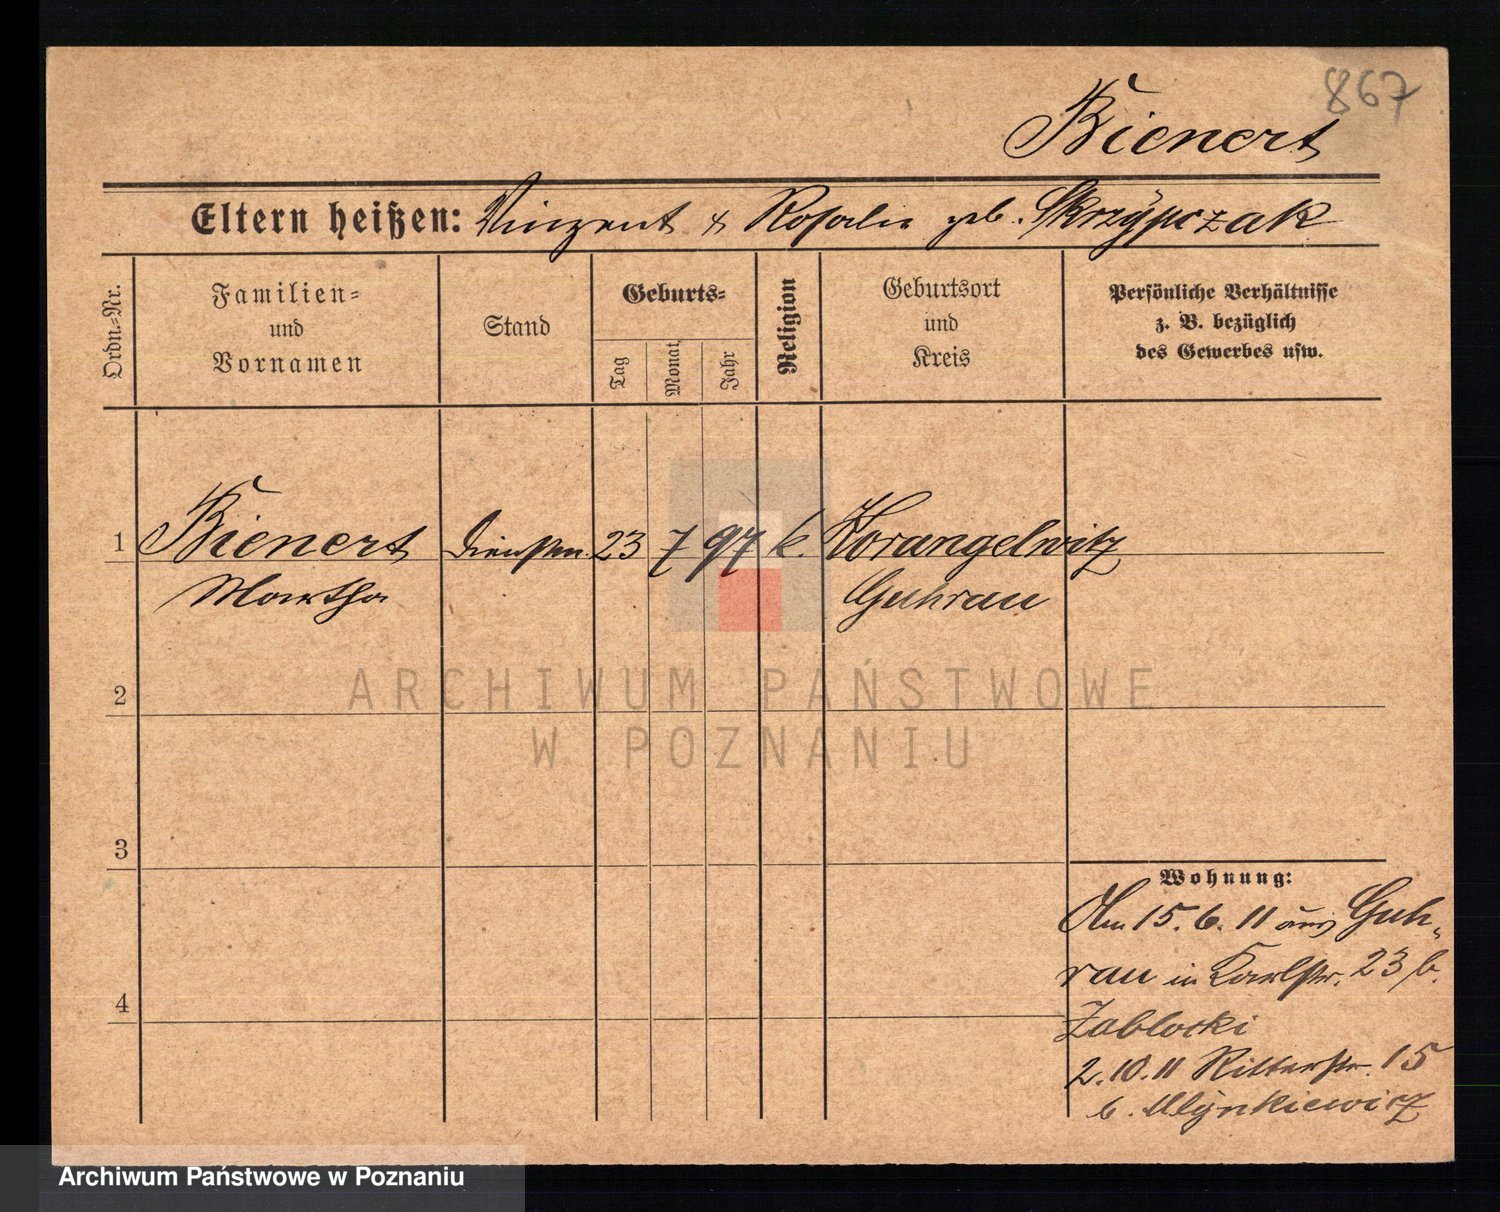 867
Bienert
Eltern heißen: Vinzent & Rosalie geb. Skrzÿpczak
Ordn.-Nr.
Familien-
und
Vornamen
Stand
Geburts-
Tag
Monat
Jahr
Religion
Geburtsort
und
Kreis
Persönliche Verhältnisse
z. B. bezüglich
des Gewerbes usw.
1 Bienert 23 7 97 k. Korangelwitz
Martha Guhrau
2
ARCHIWUM PAŃSTWOWE
W POZNANIU
3
Wohnung:
Am 15. 6. 11 aus Guh-
rau in Karlstr. 23 b.
Zablocki
4
2. 10. 11 Ritterstr. 15
b. Mlÿnkiewicz
Archiwum Państwowe w Poznaniu